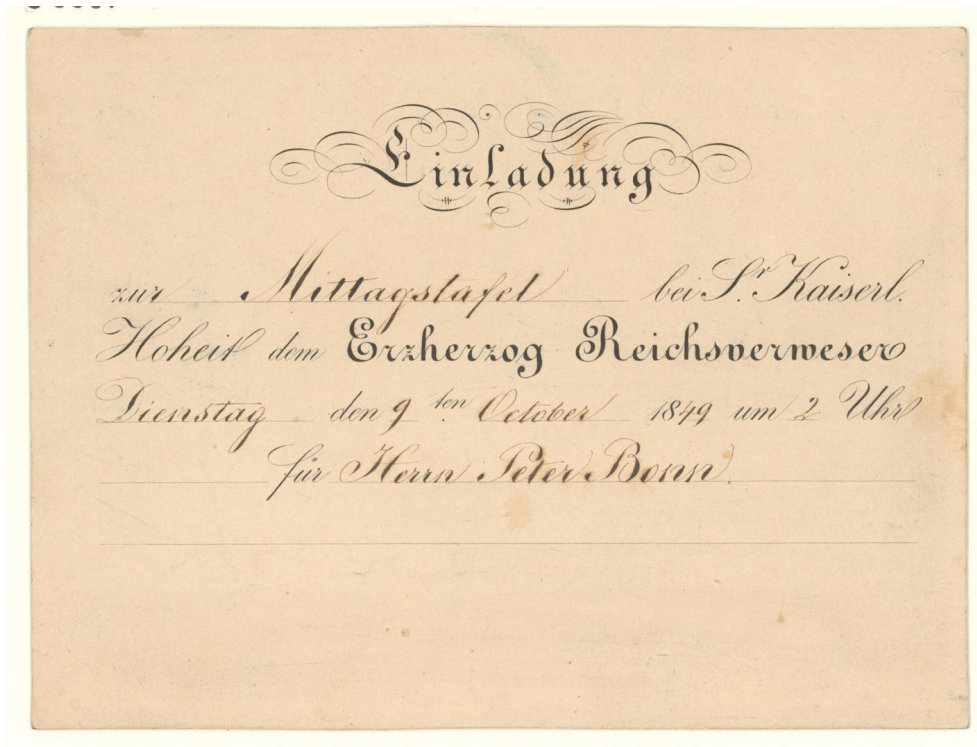 Einladung
zur Mittagstafel bei Sr. Kaiserl.
Hoheit dem Erzherzog Reichsverweser
Dienstag den 9 ten October 1849 um 2 Uhr
für Herrn Peter Bonn.